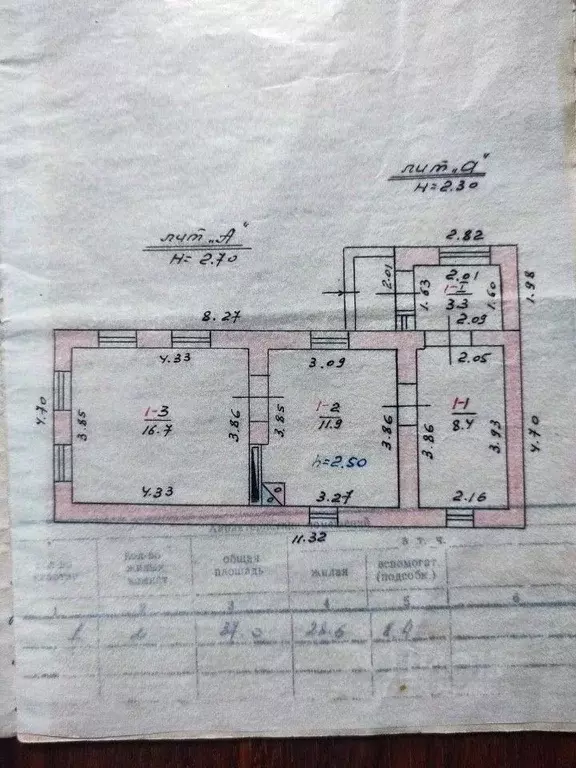 лит „а"
H=2.30
лит „А"
H=2.70
2.82
8.27
2.01
2.01
1.63
1-I
3.3
1.60
1.98
2.09
4.33
3.09
2.05
4.70
3.85
1-3
16.7
3.86
3.85
1-2
11.9
3.86
3.86
1-1
8.4
3.93
4.70
h=2.50
4.33
3.27
2.16
11.32
общая
площадь
жилая
вспомогат
(подсобн.)
1 2 3 4 5 6
28.6 8.4